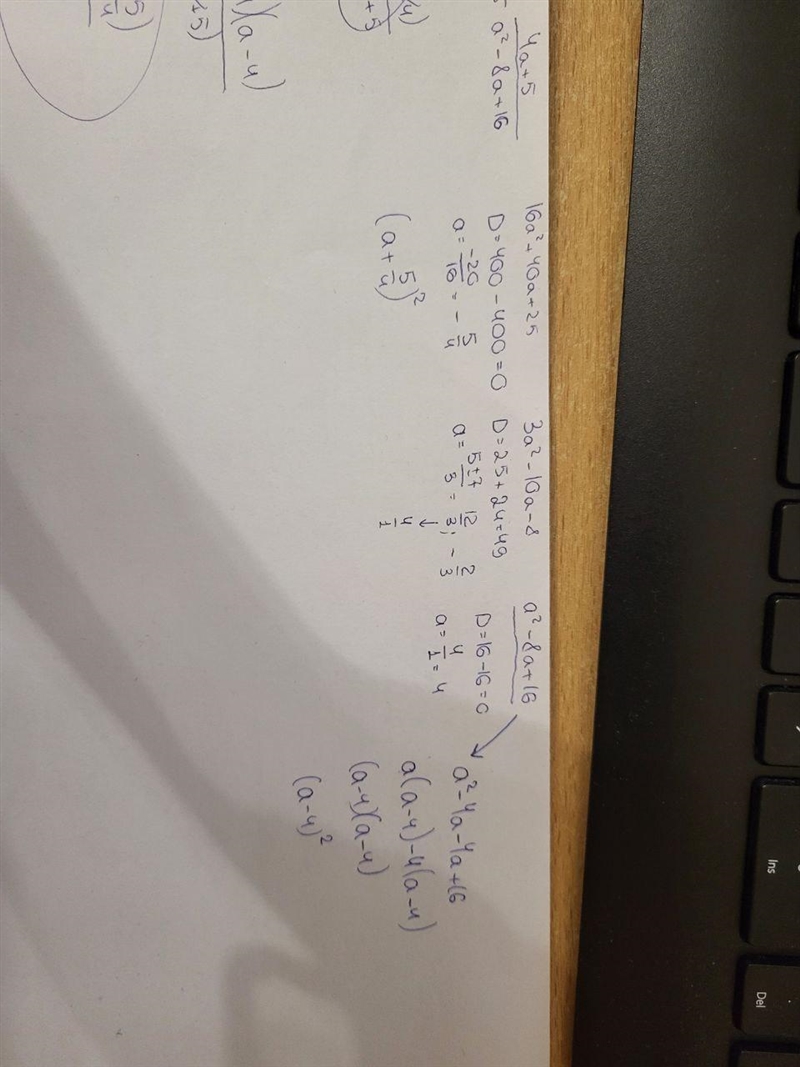 4a+5
a² - 8a + 16
(a - 4)
16a² + 40a + 25
D = 400 - 400 = 0
a = -20/16 = - 5/4
(a + 5/4)²
3a² - 10a - 8
D = 25 + 24 = 49
a = 5±7/3 = 12/3 ; - 2/3
↓
4/1
a² - 8a + 16
D = 16 - 16 = 0
a = 4/1 = 4
a² - 4a - 4a + 16
a(a - 4) - 4(a - 4)
(a - 4)(a - 4)
(a - 4)²
Ins
Del